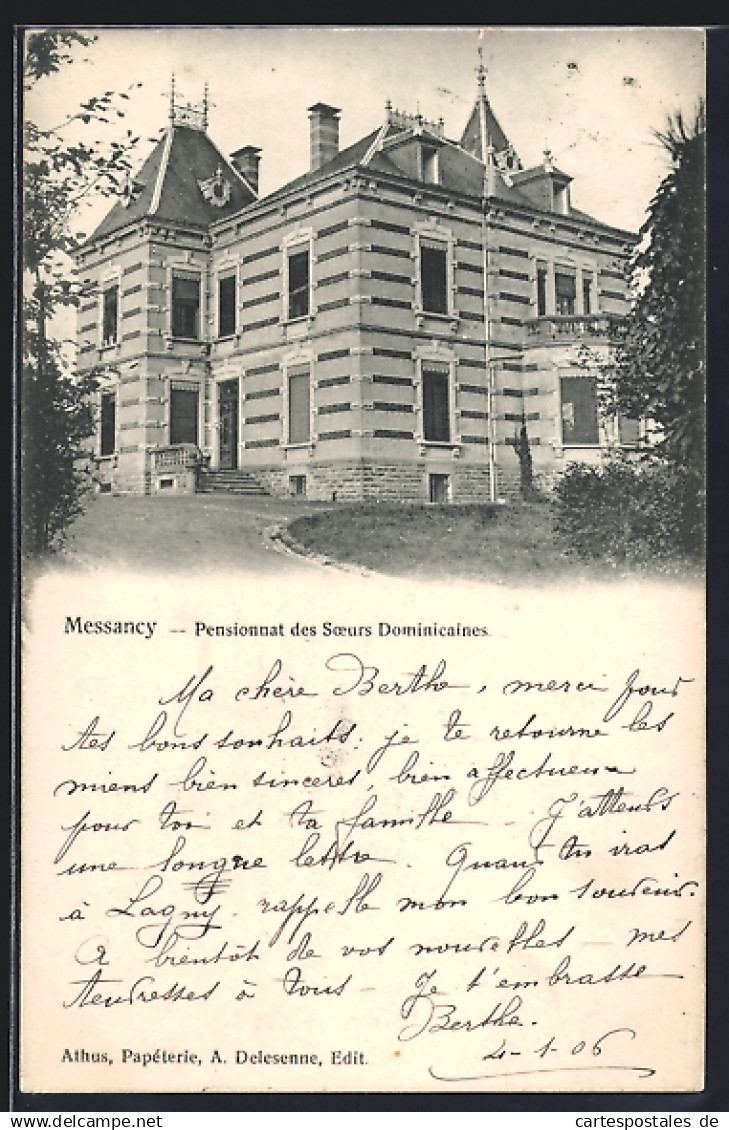 Messancy — Pensionnat des Sœurs Dominicaines.
Ma chère Berthe, merci pour
tes bons souhaits; je te retourne les
miens bien sincères, bien affectueux
pour toi et ta famille — J'attends
une longue lettre. Quand tu iras
à Lagny, rappelle mon bon souvenir.
A bientôt de vos nouvelles — mes
tendresses à tous — Je t'embrasse
Berthe.
4-1-06
Athus, Papéterie, A. Delesenne, Edit.
cartespostales de